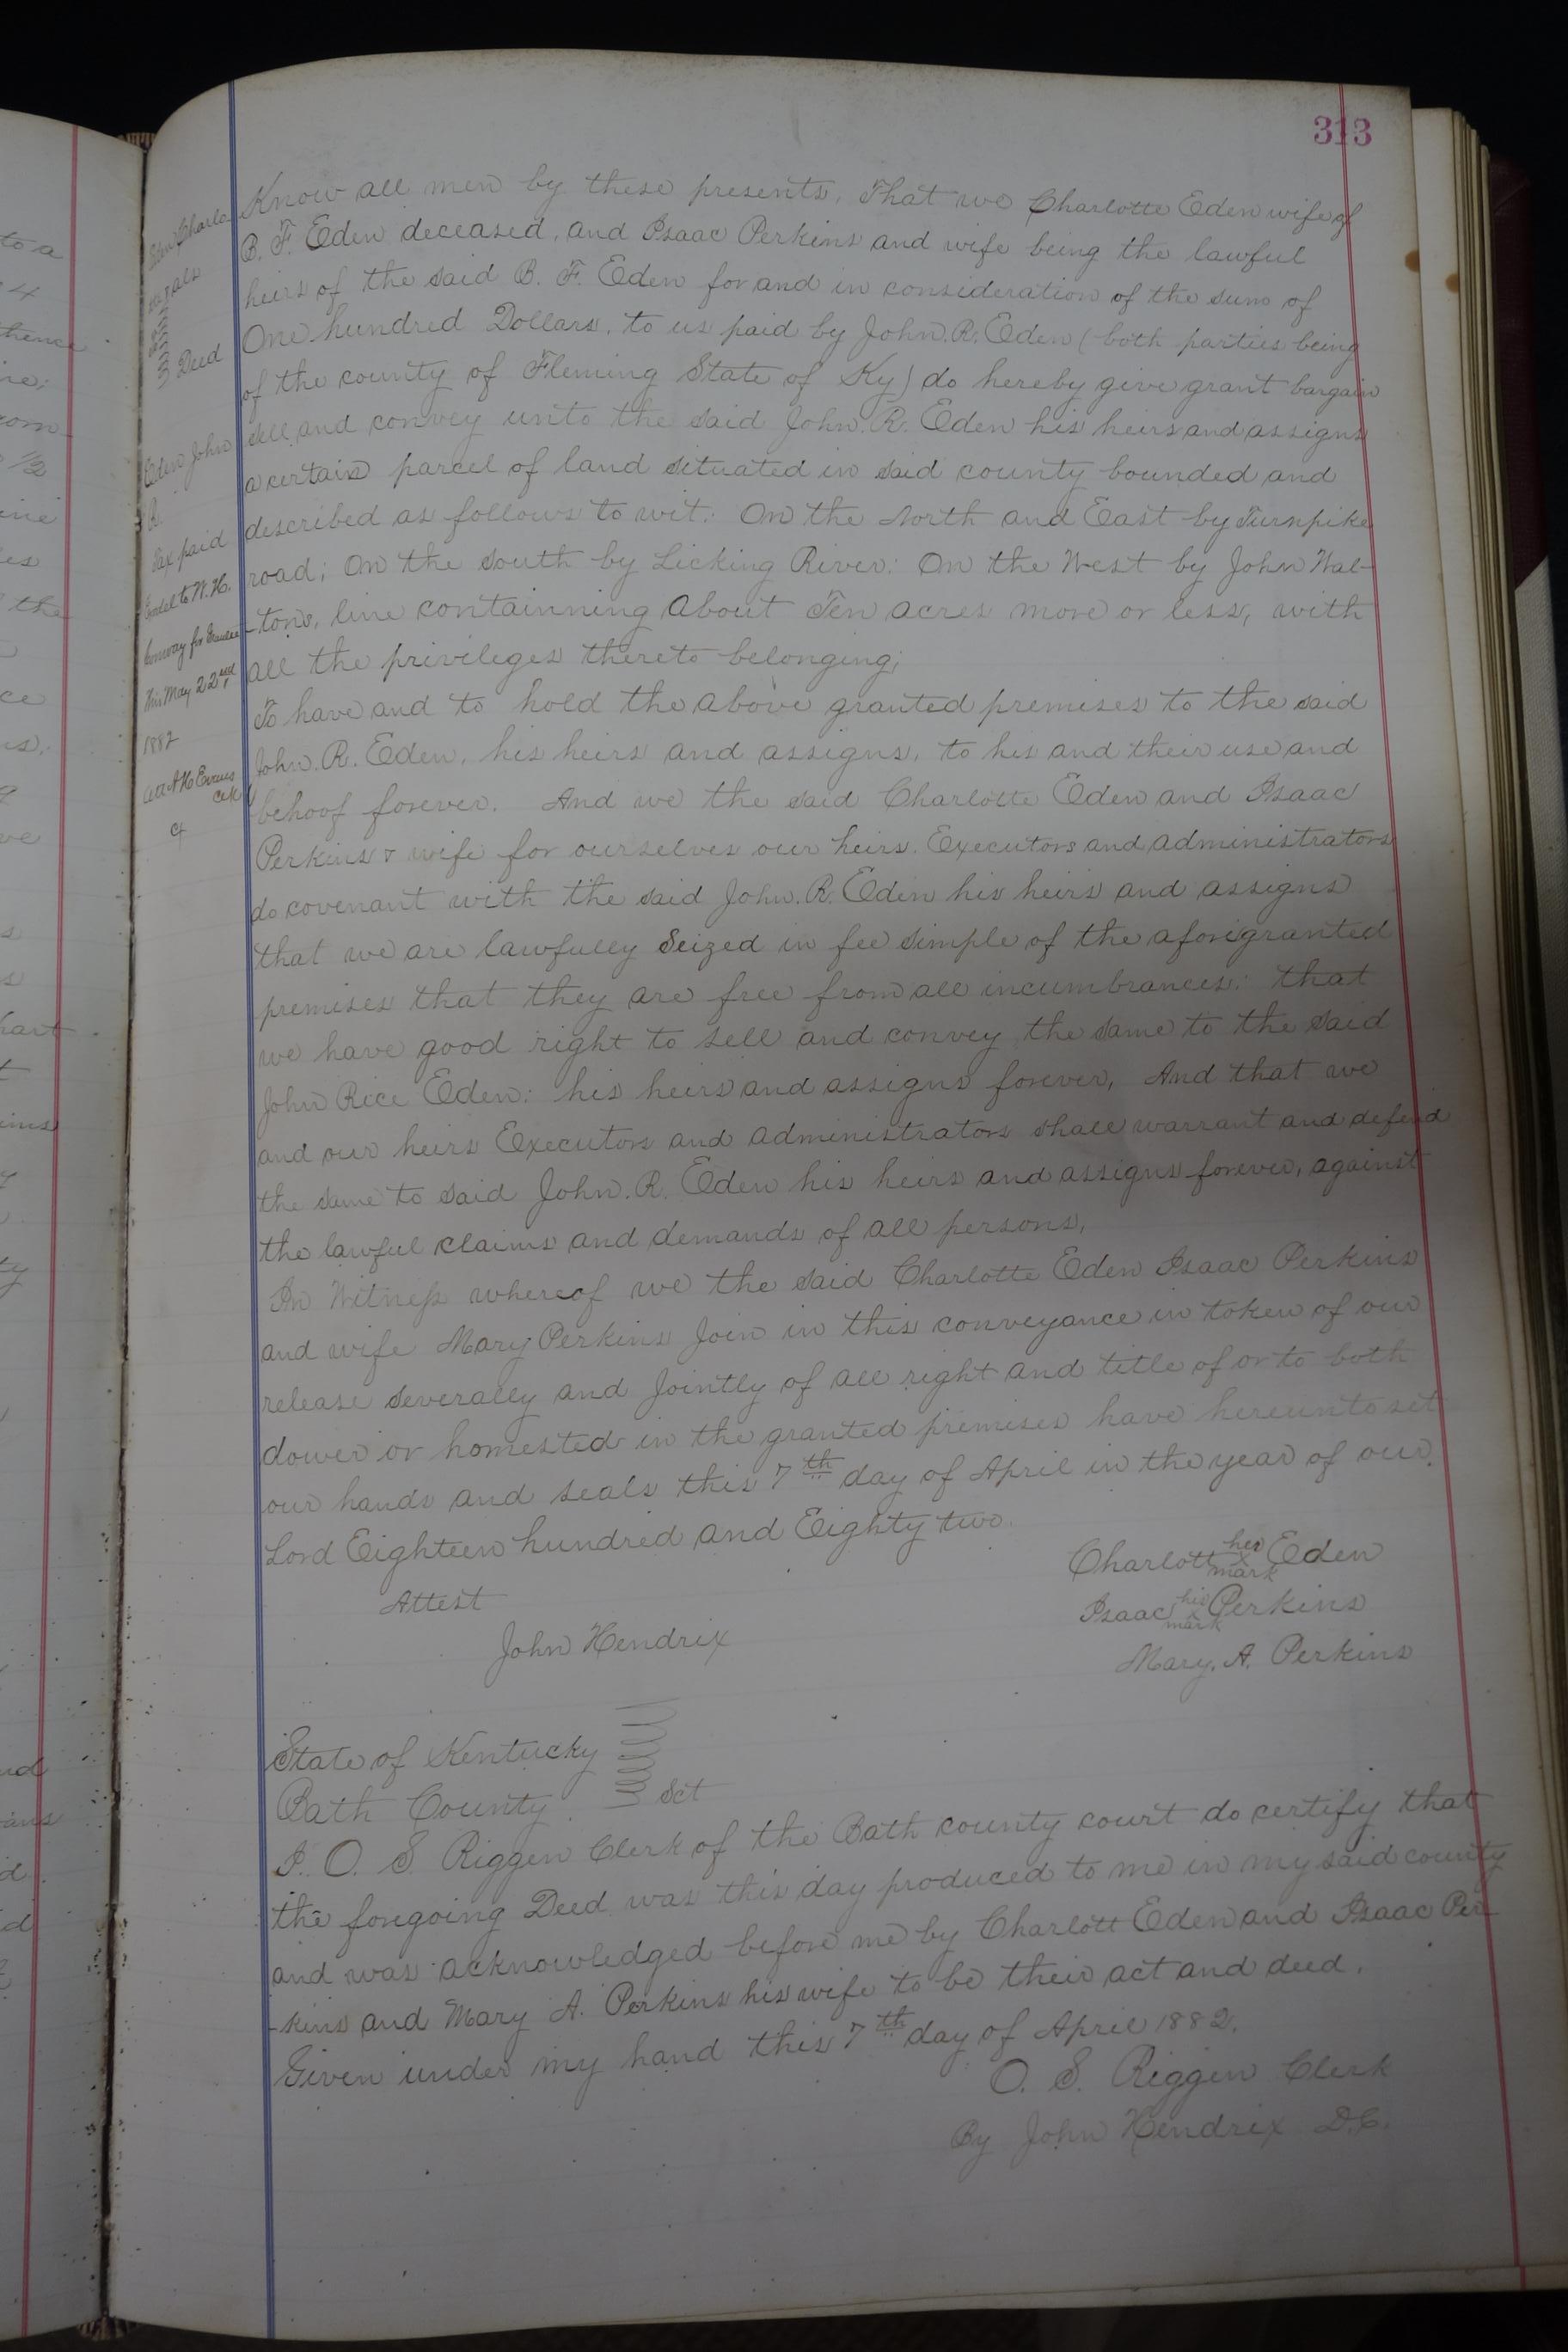 313
Know all men by these presents, That we Charlotte Eden wife of
B. F. Eden deceased, and Isaac Perkins and wife being the lawful
heirs of the said B. F. Eden for and in consideration of the sum of
One hundred Dollars, to us paid by John. R. Eden ( both parties being
of the county of Fleming State of Ky ) do hereby give grant bargain
sell and convey unto the said John. R. Eden his heirs and assigns
a certain parcel of land situated in said county bounded and
described as follows to wit: On the North and East by Turnpike
road; On the South by Licking River: On the West by John Wal-
-tons, line containning about Ten acres more or less, with
all the privileges thereto belonging;
To have and to hold the above granted premises to the said
John. R. Eden, his heirs and assigns, to his and their use and
behoof forever. And we the said Charlotte Eden and Isaac
Perkins & wife for ourselves our heirs. Executors and administrators
do covenant with the said John. R. Eden his heirs and assigns
that we are lawfully Seized in fee simple of the aforegranted
premises that they are free from all incumbrances: that
we have good right to sell and convey the same to the said
John Rice Eden: his heirs and assigns forever, And that we
and our heirs Executors and administrators shall warrant and defend
the same to said John. R. Eden his heirs and assigns forever, against
the lawful claims and demands of all persons,
In Witness whereof we the said Charlotte Eden Isaac Perkins
and wife Mary Perkins Join in this conveyance in token of our
release severally and Jointly of all right and title of or to both
dower or homested in the granted premises have hereunto set
our hands and seals this 7th day of April in the year of our
Lord Eighteen hundred and Eighty two.
Charlott her x mark Eden
Attest
Isaac his x mark Perkins
John Hendrix
Mary. A. Perkins
State of Kentucky
Bath County Sct
I. O. S. Riggen Clerk of the Bath county court do certify that
the foregoing Deed was this day produced to me in my said county
and was acknowledged before me by Charlott Eden and Isaac Per
-kins and Mary A. Perkins his wife to be their act and deed.
Given under my hand this 7th day of April 1882.
O. S. Riggen Clerk
By John Hendrix D.C.
Eden Charlo
als
Deed
Eden John
R.
Tax paid
to W. H.
Conway for Grantee
this May 22nd
1882
Att A H Evans
Clk